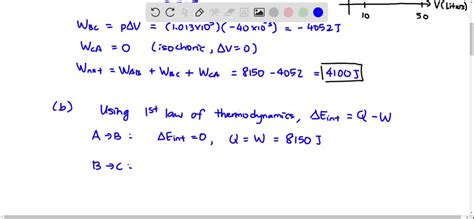 W_BC = pΔV = (1.013×10⁵)(-40×10⁻³) = -4052J
V(Liters)
10 50
W_CA = 0 (isochoric, ΔV=0)
W_net = W_AB + W_BC + W_CA = 8150 - 4052 = 4100J
(b) Using 1st law of thermodynamics, ΔEint = Q - W
A→B : ΔEint = 0, Q = W = 8150 J
B→C :